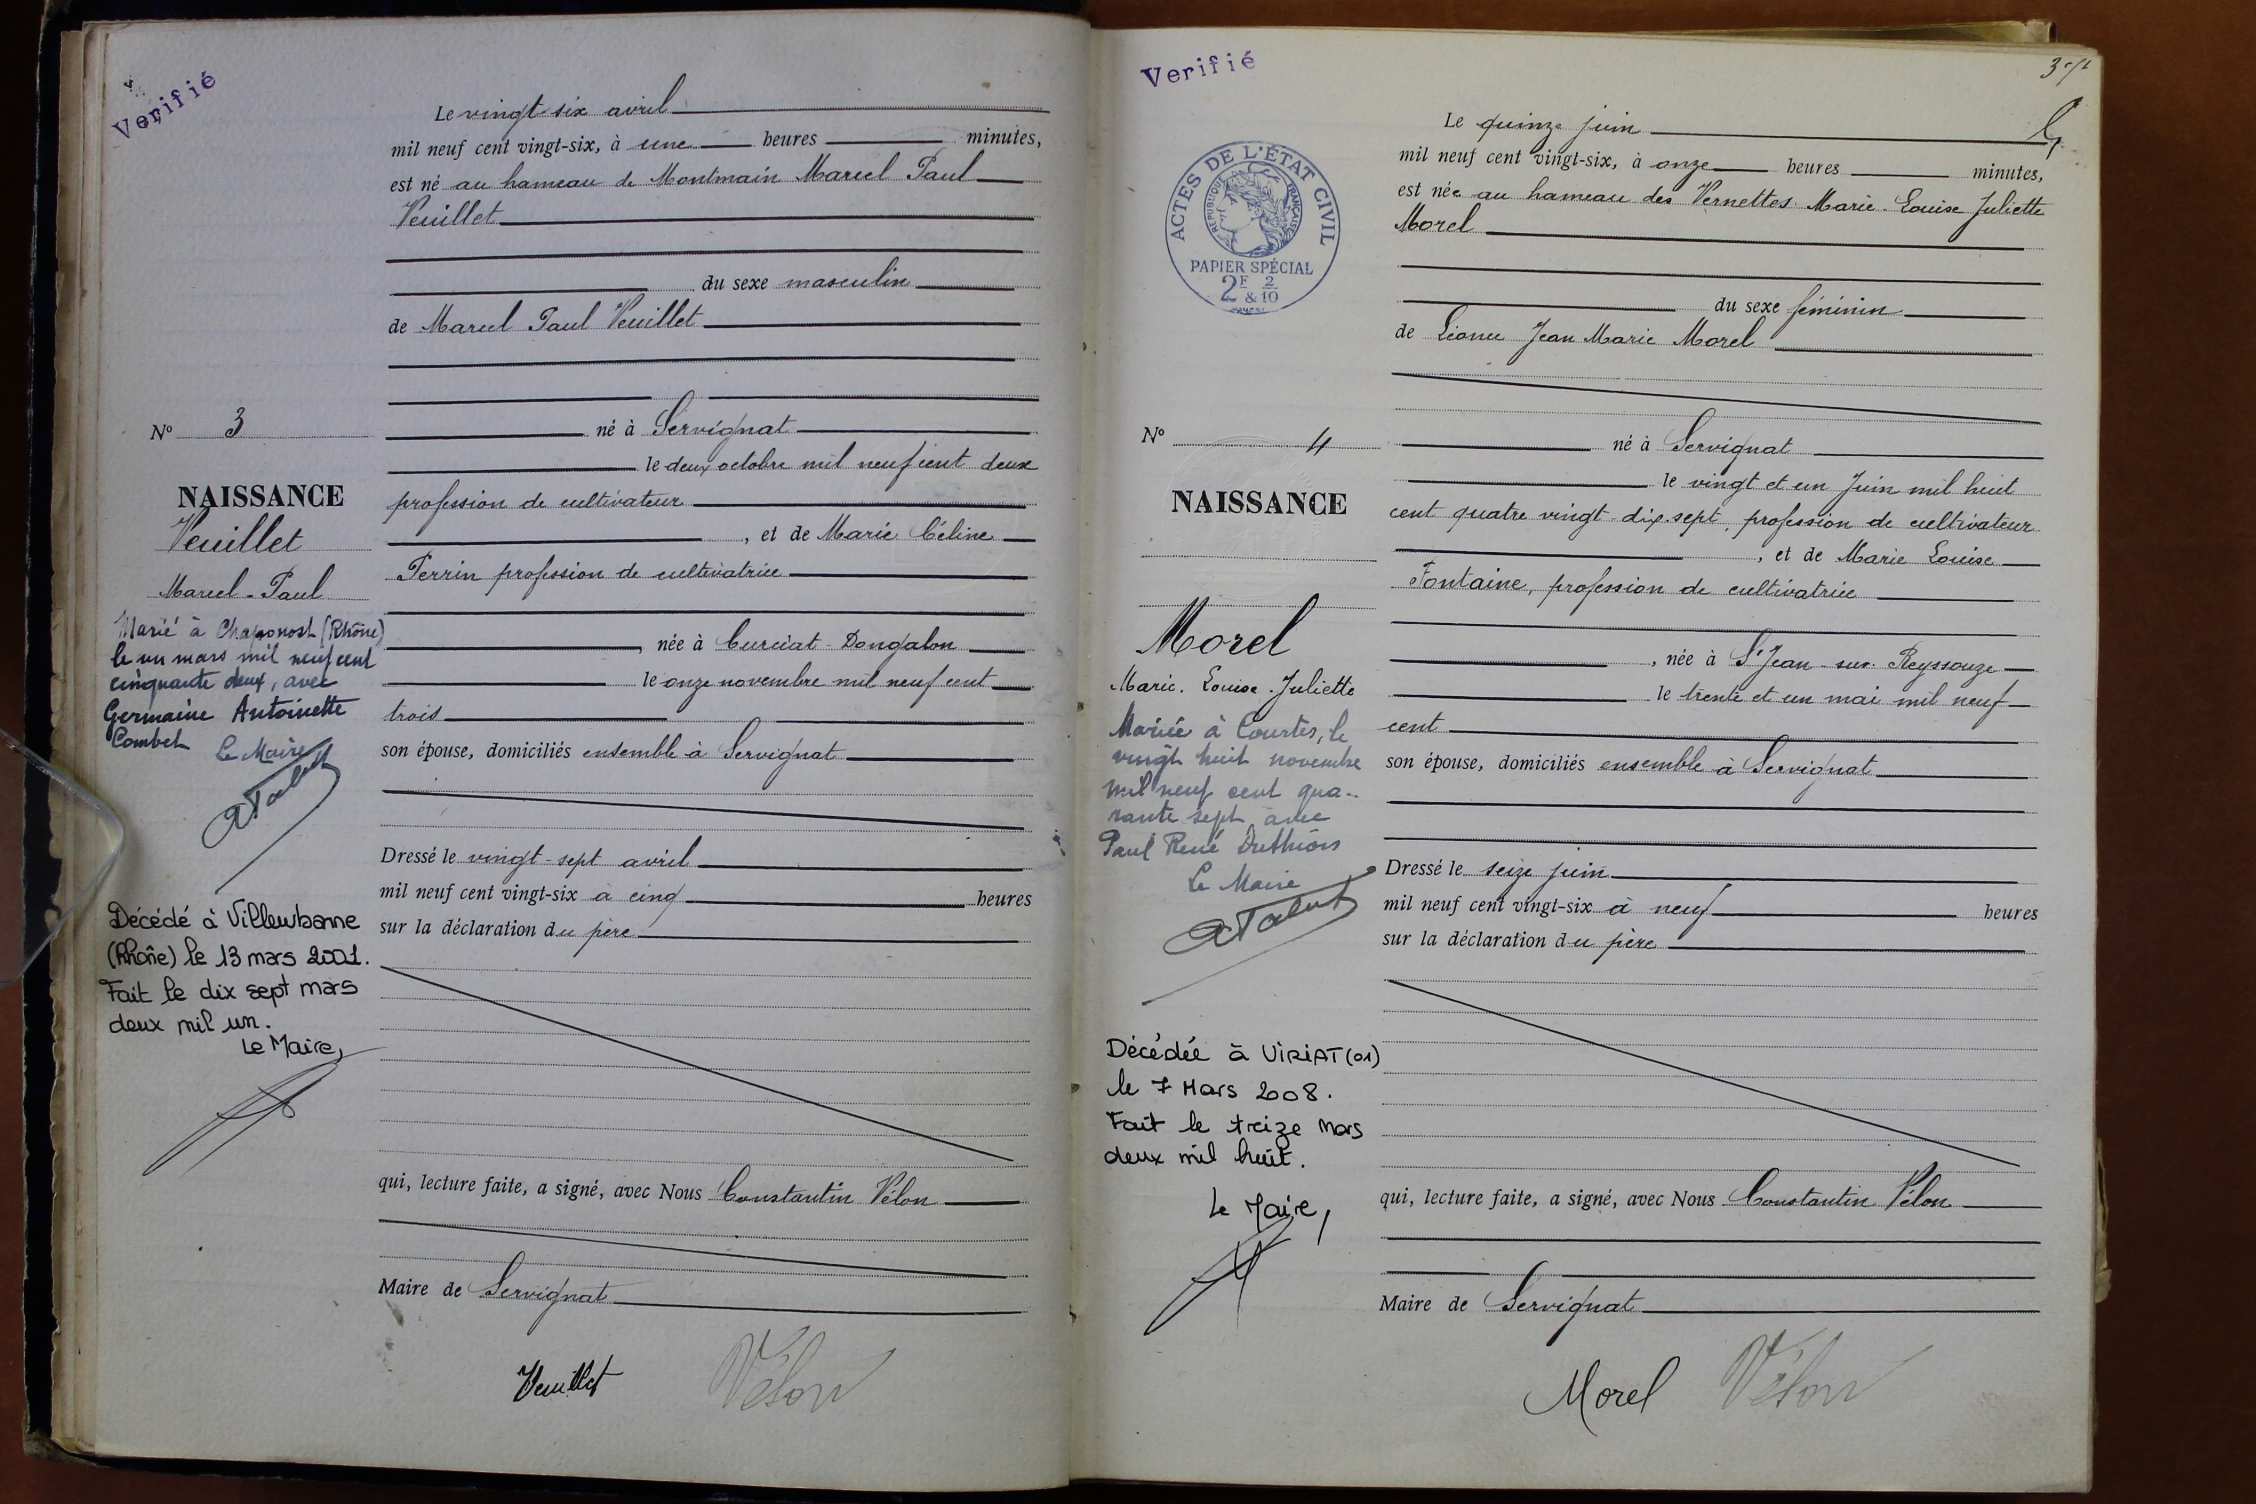 Verifié
Le vingt-six avril
mil neuf cent vingt-six, à une heures minutes,
est né au hameau de Montmain Marcel Paul
Veuillet
du sexe masculin
de Marcel Paul Veuillet
né à Servignat
le deux octobre mil neuf cent deux
profession de cultivateur
, et de Marie Céline
Perrin profession de cultivatrice
, née à Curciat-Dongalon
le onze novembre mil neuf cent
trois
son épouse, domiciliés ensemble à Servignat
Dressé le vingt-sept avril
mil neuf cent vingt-six à cinq heures
sur la déclaration du père
qui, lecture faite, a signé, avec Nous Constantin Vélon
Maire de Servignat
Veuillet Vélon
No 3
NAISSANCE
Veuillet
Marcel-Paul
Marié à Chaponost (Rhône)
le un mars mil neuf cent
cinquante deux, avec
Germaine Antoinette
Combet Le Maire
Décédé à Villeurbanne
(Rhône) le 13 mars 2001.
Fait le dix sept mars
deux mil un.
Le Maire,
Verifié
ACTES DE L'ÉTAT CIVIL
RÉPUBLIQUE FRANÇAISE
PAPIER SPÉCIAL
2F & 2/10
Le quinze juin
mil neuf cent vingt-six, à onze heures minutes,
est née au hameau des Vernettes Marie-Louise Juliette
Morel
du sexe féminin
de Jean Marie Morel
né à Servignat
le vingt et un Juin mil huit
cent quatre vingt-dix-sept, profession de cultivateur
, et de Marie Louise
Fontaine, profession de cultivatrice
, née à St Jean-sur-Reyssouze
le trente et un mai mil neuf
cent
son épouse, domiciliés ensemble à Servignat
Dressé le seize juin
mil neuf cent vingt-six à neuf heures
sur la déclaration du père
qui, lecture faite, a signé, avec Nous Constantin Vélon
Maire de Servignat
Morel Vélon
No 4
NAISSANCE
Morel
Marie-Louise-Juliette
Mariée à Courtes, le
vingt huit novembre
mil neuf cent qua-
rante sept avec
Paul René
Le Maire
Décédée à VIRIAT (01)
le 7 Mars 2008.
Fait le treize Mars
deux mil huit.
Le Maire,